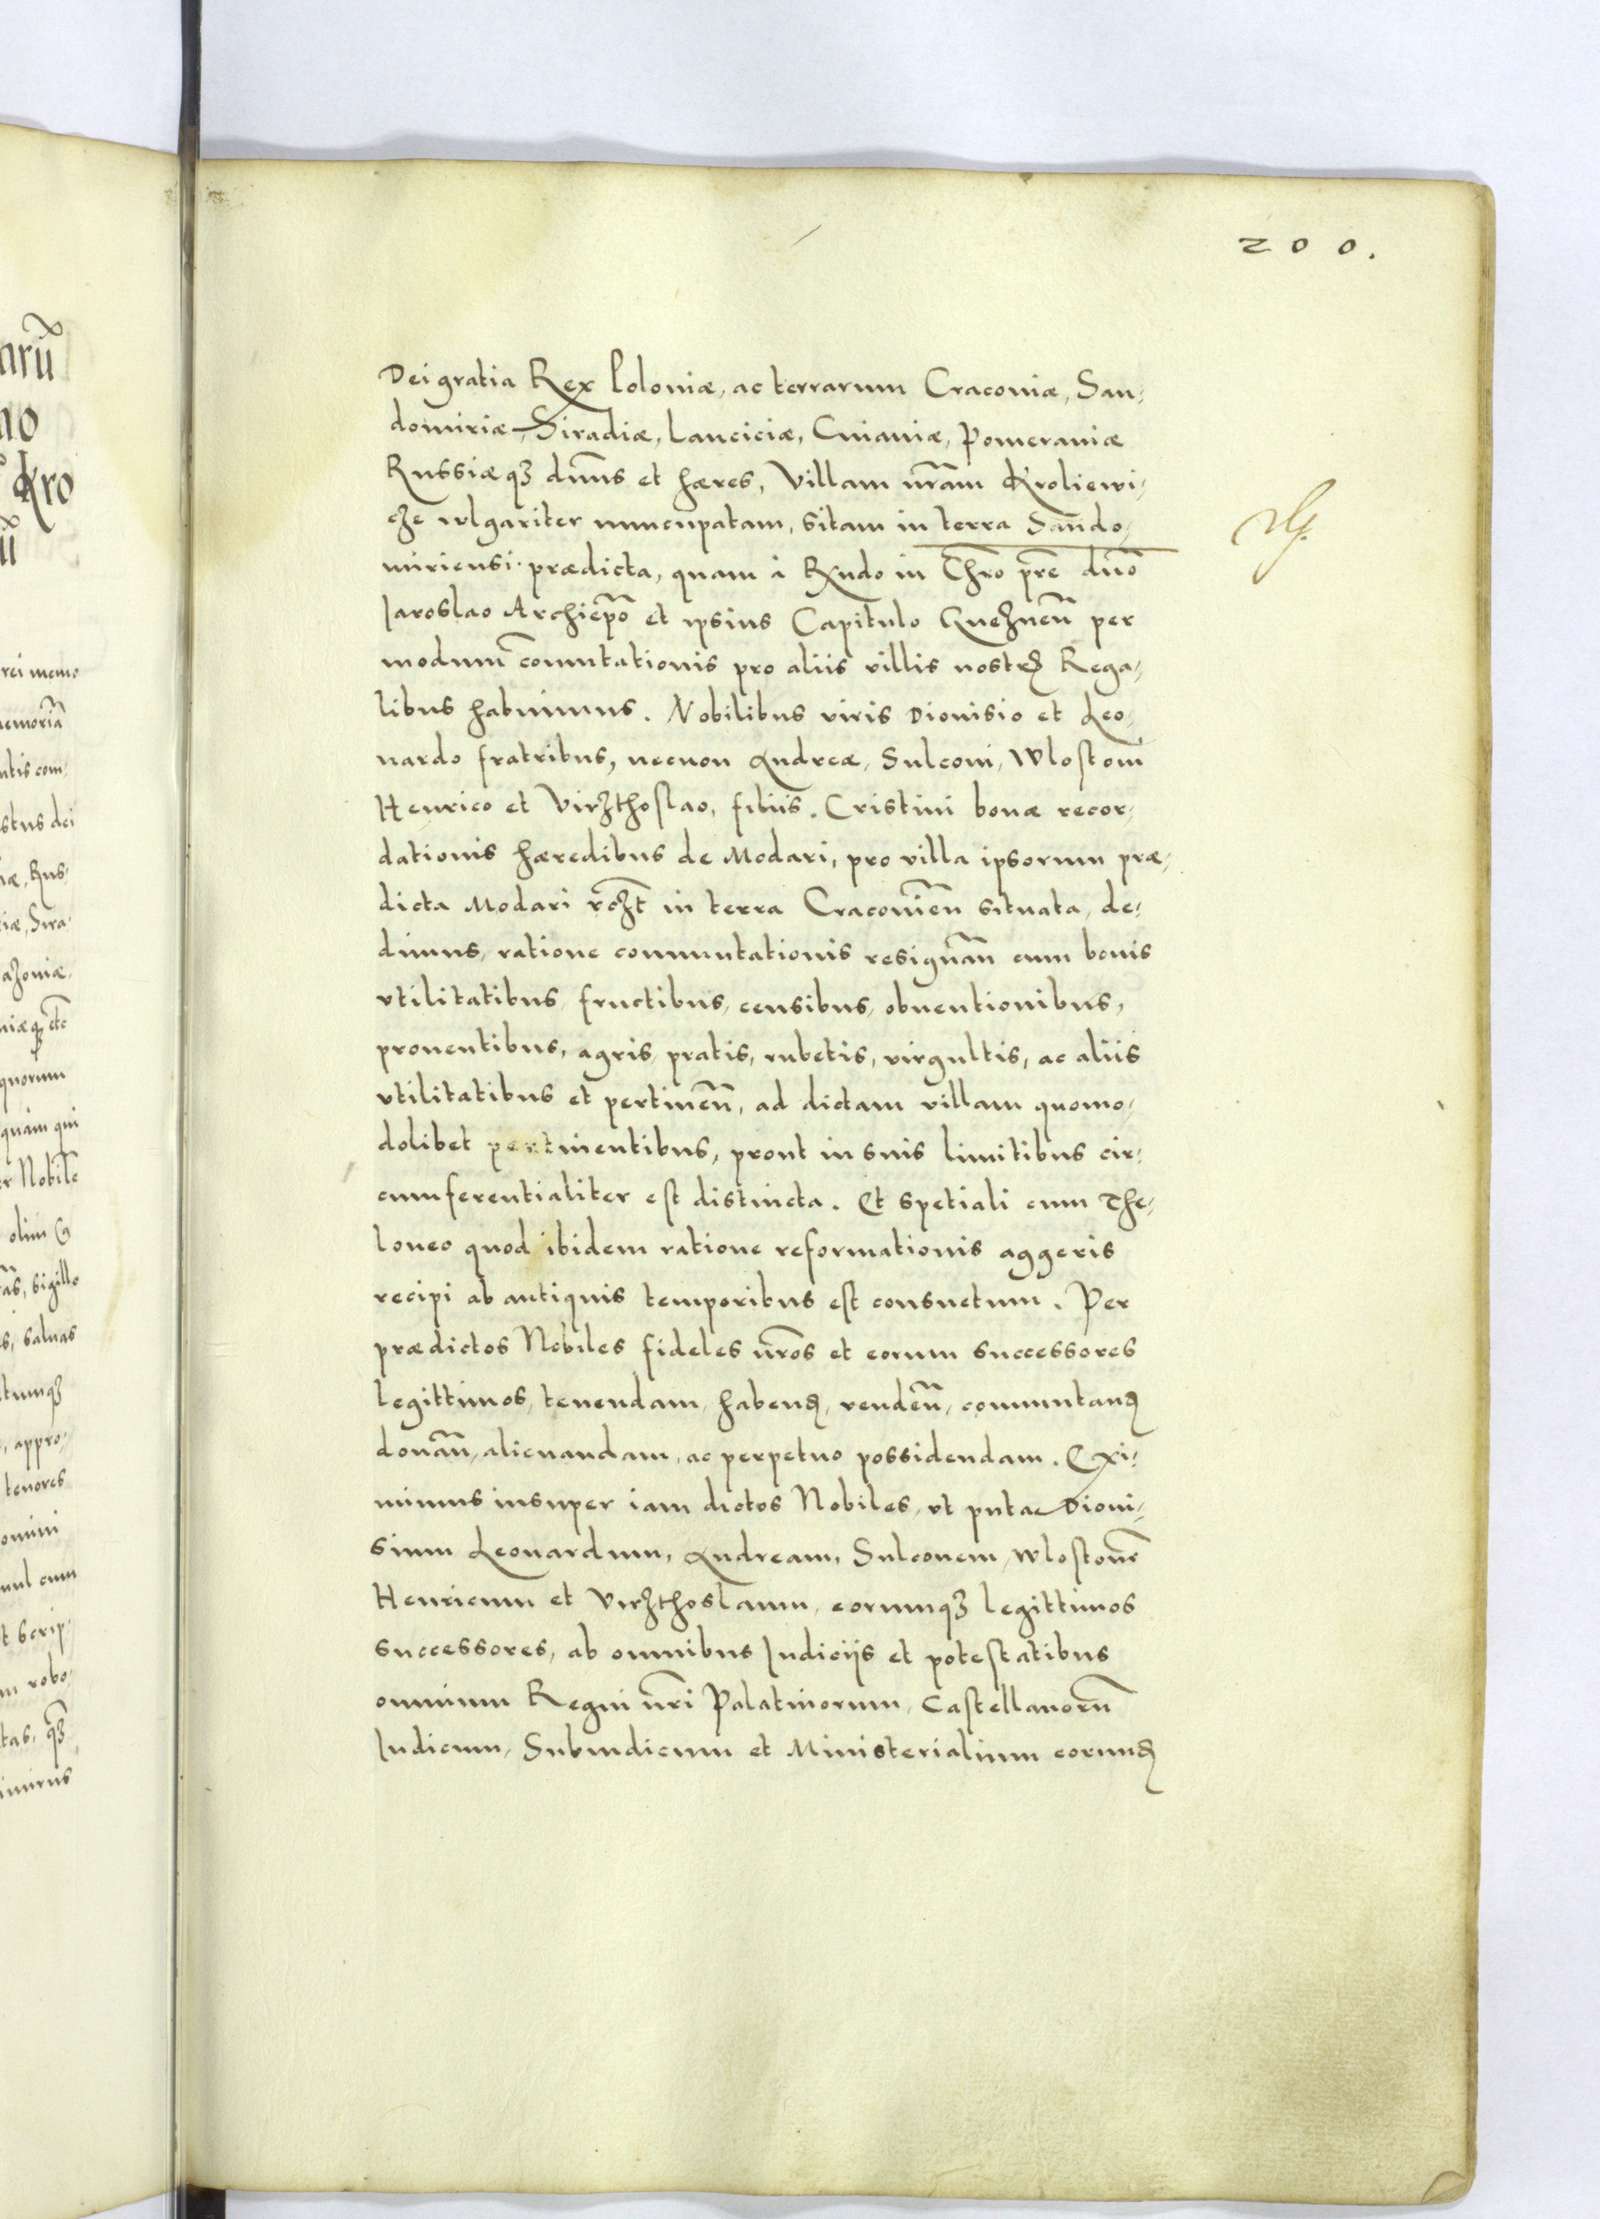 200.
Dei gratia Rex Poloniæ, ac terrarum Cracoviæ, San-
domiriæ, Siradiæ, Lanciciæ, Cuiaviæ, Pomeraniæ
Russiæqȝ dn̄us et hæres, Villam nr̄am Kroliewi-
cze vlgariter nuncupatam, sitam in terra Sando-
miriensi prædicta, quam à Rxndo in Chr̄o pr̄e dn̄o
Iaroslao Archiep̄o et ipsius Capitulo Gneznen̄ per
modum comutationis pro aliis villis nostrꝭ Rega-
libus habuimus. Nobilibus viris Dionisio et Leo-
nardo fratribus, necnon Andreæ, Sulconi, Wlostoni
Henrico et Virzthoslao, filiis. Cristini bonæ recor-
dationis hæredibus de Modari, pro villa ipsorum præ-
dicta Modari rczt̄ in terra Cracovien̄ situata, de-
dimus, ratione commutationis resignan̄ cum bonis
vtilitatibus, fructibus, censibus, obuentionibus,
prouentibus, agris, pratis, rubetis, virgultis, ac aliis
vtilitatibus et pertinen̄, ad dictam villam quomo-
dolibet pertinentibus, prout in suis limitibus cir-
cumferentialiter est distincta. Et spetiali cum The-
loneo quod ibidem ratione reformationis aggeris
recipi ab antiquis temporibus est consuetum. Per
prædictos Nobiles fideles nr̄os et eorum successores
legittimos, tenendam, habenꝺ, venden̄, comuntanꝺ
donan̄, alienandam, ac perpetuo possidendam. Exi-
mimus insuper iam dictos Nobiles, vt puta Dioni-
sium Leonardum, Andream, Sulconem, Wlostonē
Henricum et Virzthoslaum, eorumqȝ legittimos
successores, ab omnibus Iudiciis et potestatibus
omnium Regni nr̄i Palatinorum, Castellanorū
Iudicum, Subiudicum et Ministerialium eorunꝺ